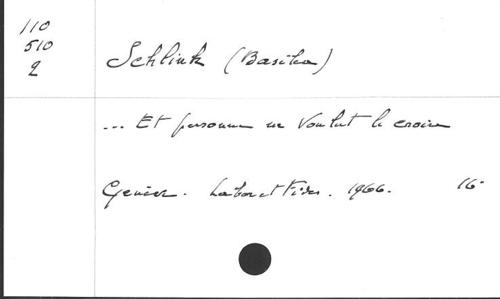 110
510
2
Schlink (Basilea)
... Et personne ne voulut le croire
Genève. Labor et Fides. 1966. 16°